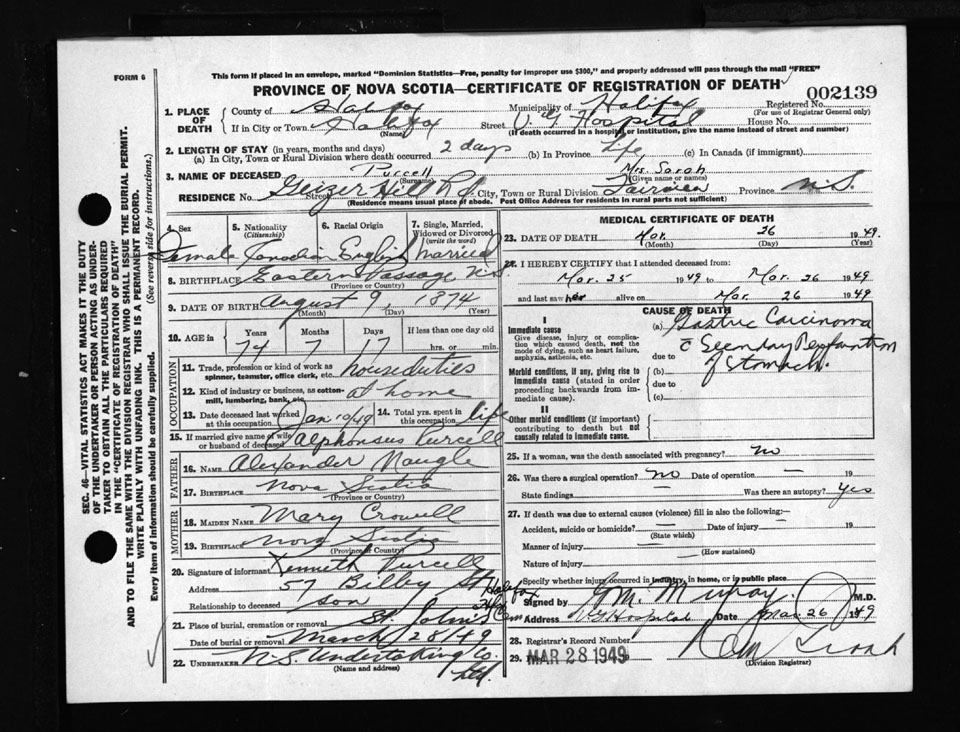 This form if placed in an envelope, marked "Dominion Statistics—Free, penalty for improper use $300," and properly addressed will pass through the mail "FREE"
FORM 6
PROVINCE OF NOVA SCOTIA—CERTIFICATE OF REGISTRATION OF DEATH
002139
1. PLACE OF DEATH
County of Halifax Municipality of Halifax Registered No.
(For use of Registrar General only)
If in City or Town Halifax Street V. G. Hospital House No.
(Name) (If death occurred in a hospital or institution, give the name instead of street and number)
2. LENGTH OF STAY (in years, months and days)
(a) In City, Town or Rural Division where death occurred 2 days (b) In Province life (c) In Canada (if immigrant)
3. NAME OF DECEASED Purcell Mrs. Sarah
(Surname) (Given name or names)
RESIDENCE No. Geizer Hill Rd. Street City, Town or Rural Division Fairview Province N.S.
(Residence means usual place of abode. Post Office Address for residents in rural parts not sufficient)
4. Sex
Female
5. Nationality
(Citizenship)
Canadian
6. Racial Origin
English
7. Single, Married, Widowed or Divorced
(write the word)
Married
8. BIRTHPLACE Eastern Passage N.S.
(Province or Country)
9. DATE OF BIRTH August 9, 1874
(Month) (Day) (Year)
10. AGE in
Years Months Days If less than one day old
74 7 17 hrs. or min.
OCCUPATION
11. Trade, profession or kind of work as spinner, teamster, office clerk, etc. houseduties
12. Kind of industry or business, as cotton-mill, lumbering, bank, etc. at home
13. Date deceased last worked at this occupation Jan 10/49 14. Total yrs. spent in this occupation life
15. If married give name of wife or husband of deceased Alphonsus Purcell
FATHER
16. NAME Alexander Naugle
17. BIRTHPLACE Nova Scotia
(Province or Country)
MOTHER
18. MAIDEN NAME Mary Crowell
19. BIRTHPLACE Nova Scotia
(Province or Country)
20. Signature of informant Kenneth Purcell
Address 57 Bilby St Halifax
Relationship to deceased son
21. Place of burial, cremation or removal St. John's Cem
Date of burial or removal March 28/49
22. UNDERTAKER N.S. Undertaking Co. Ltd.
(Name and address)
MEDICAL CERTIFICATE OF DEATH
23. DATE OF DEATH Mar. 26 1949.
(Month) (Day) (Year)
24. I HEREBY CERTIFY that I attended deceased from
Mar. 25 1949 to Mar. 26 1949
and last saw her alive on Mar. 26 1949
CAUSE OF DEATH
I
Immediate cause
Give disease, injury or complication which caused death, not the mode of dying, such as heart failure, asphyxia, asthenia, etc.
(a) Gastric Carcinoma
c Secondary Perforation
of Stomach.
due to
Morbid conditions, if any, giving rise to Immediate cause (stated in order proceeding backwards from immediate cause).
(b)
due to
(c)
II
Other morbid conditions (if important) contributing to death but not causally related to immediate cause.
25. If a woman, was the death associated with pregnancy? no
26. Was there a surgical operation? no Date of operation — 19
State findings — Was there an autopsy? yes
27. If death was due to external causes (violence) fill in also the following:—
Accident, suicide or homicide? — Date of injury — 19
(State which)
Manner of injury —
(How sustained)
Nature of injury
Specify whether injury occurred in industry, in home, or in public place
Signed by M.D.
Address V.G. Hospital Date Mar. 26 1949
28. Registrar's Record Number
29. MAR 28 1949
(Division Registrar)
SEC. 46—VITAL STATISTICS ACT MAKES IT THE DUTY OF THE UNDERTAKER OR PERSON ACTING AS UNDERTAKER TO OBTAIN ALL THE PARTICULARS REQUIRED IN THE "CERTIFICATE OF REGISTRATION OF DEATH"
AND TO FILE THE SAME WITH THE DIVISION REGISTRAR WHO SHALL ISSUE THE BURIAL PERMIT.
WRITE PLAINLY WITH UNFADING INK. THIS IS A PERMANENT RECORD.
Every item of information should be carefully supplied. (See reverse side for instructions.)